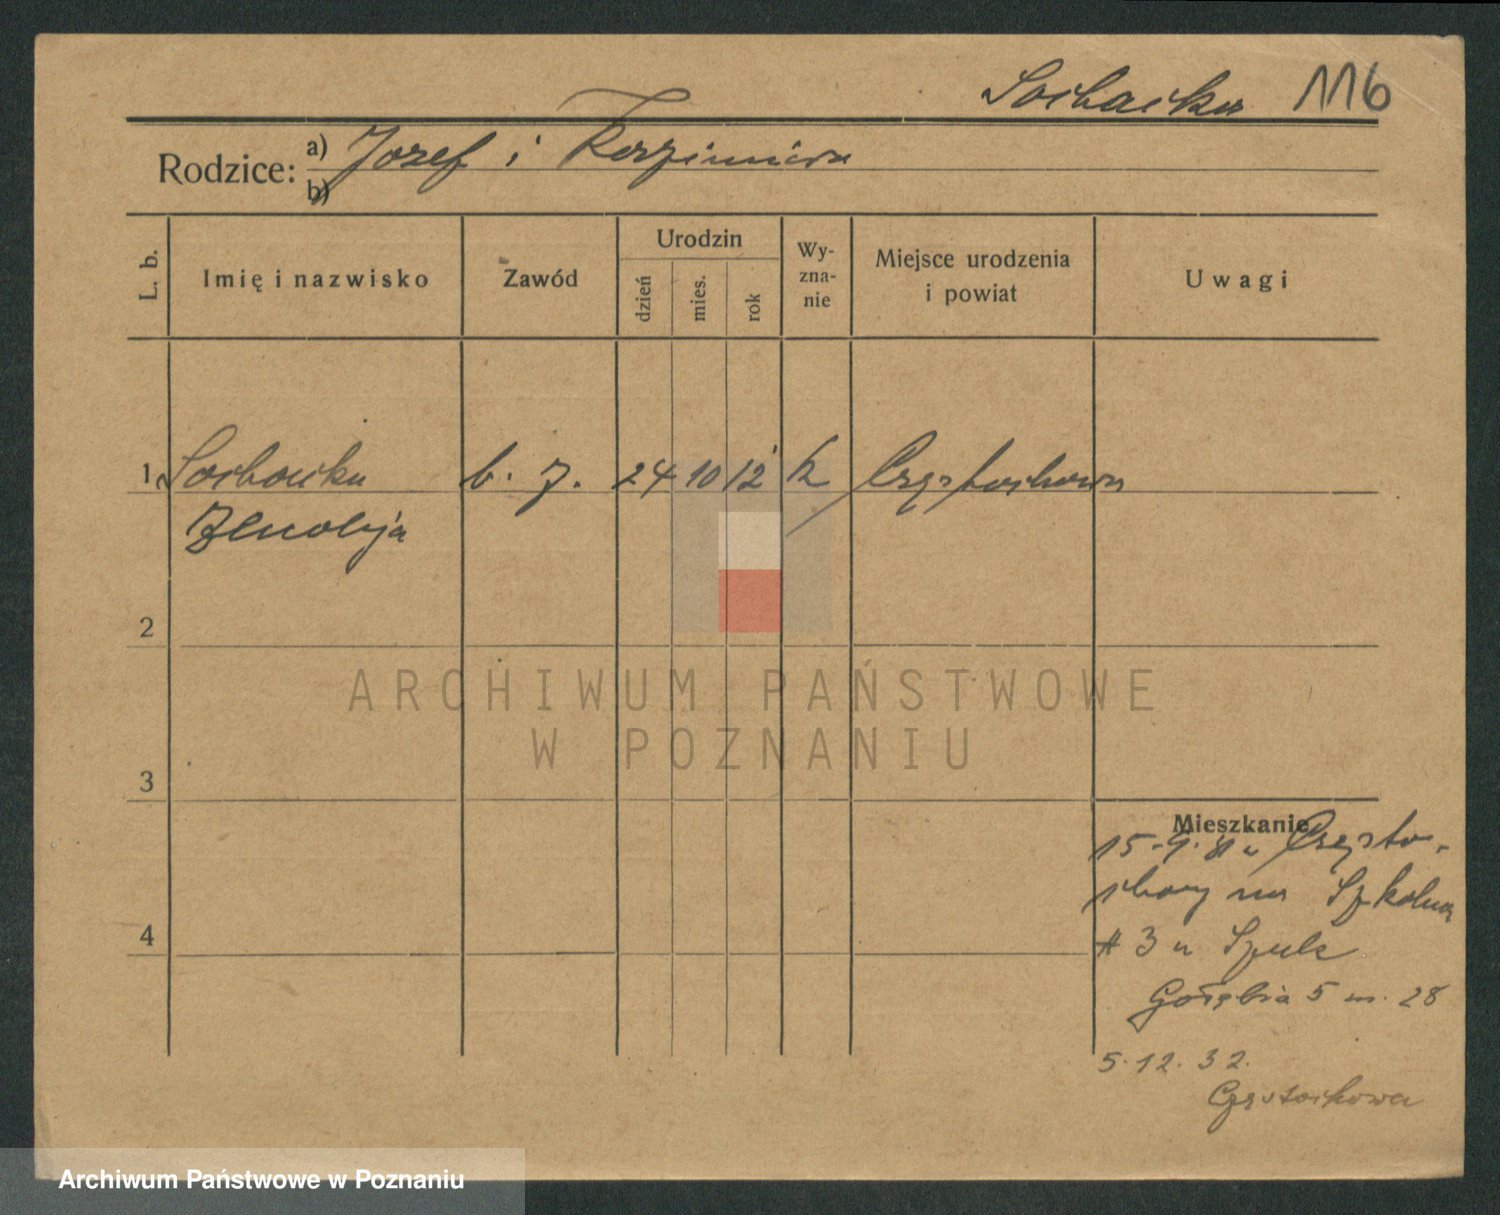 Sochacka 116
Rodzice: a) Jozef i Kazimiera
b)
L. b. Imię i nazwisko Zawód Urodzin dzień mies. rok Wy-zna-nie Miejsce urodzenia i powiat Uwagi
1 Sochacka b. z. 24 10 12 k Częstochowa
Zenobja
2
3
Mieszkanie
15. 9. 31 z Często-
chowy na Szkolną
4 # 3 u Szulc
Gołębia 5 m. 28
5. 12. 32.
Częstochowa
ARCHIWUM PAŃSTWOWE
W POZNANIU
Archiwum Państwowe w Poznaniu